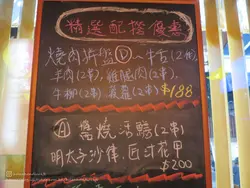 精選配搭優惠
燒肉拼盤Ⓓ～牛舌(2串)
羊肉(2串), 雞腿肉(2串),
牛柳(2串), 翼(2串) $188
Ⓐ 燒活鱔(2串)
明太子沙律, 花甲
$200